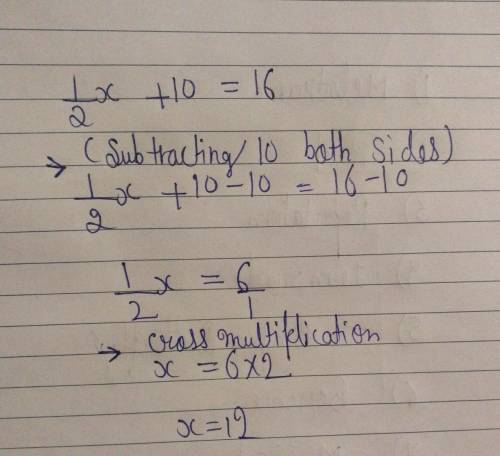 1/2 x + 10 = 16
→ (Subtracting 10 both sides)
1/2 x + 10 - 10 = 16 - 10
1/2 x = 6/1
→ cross multiplication
x = 6 × 2
x = 12